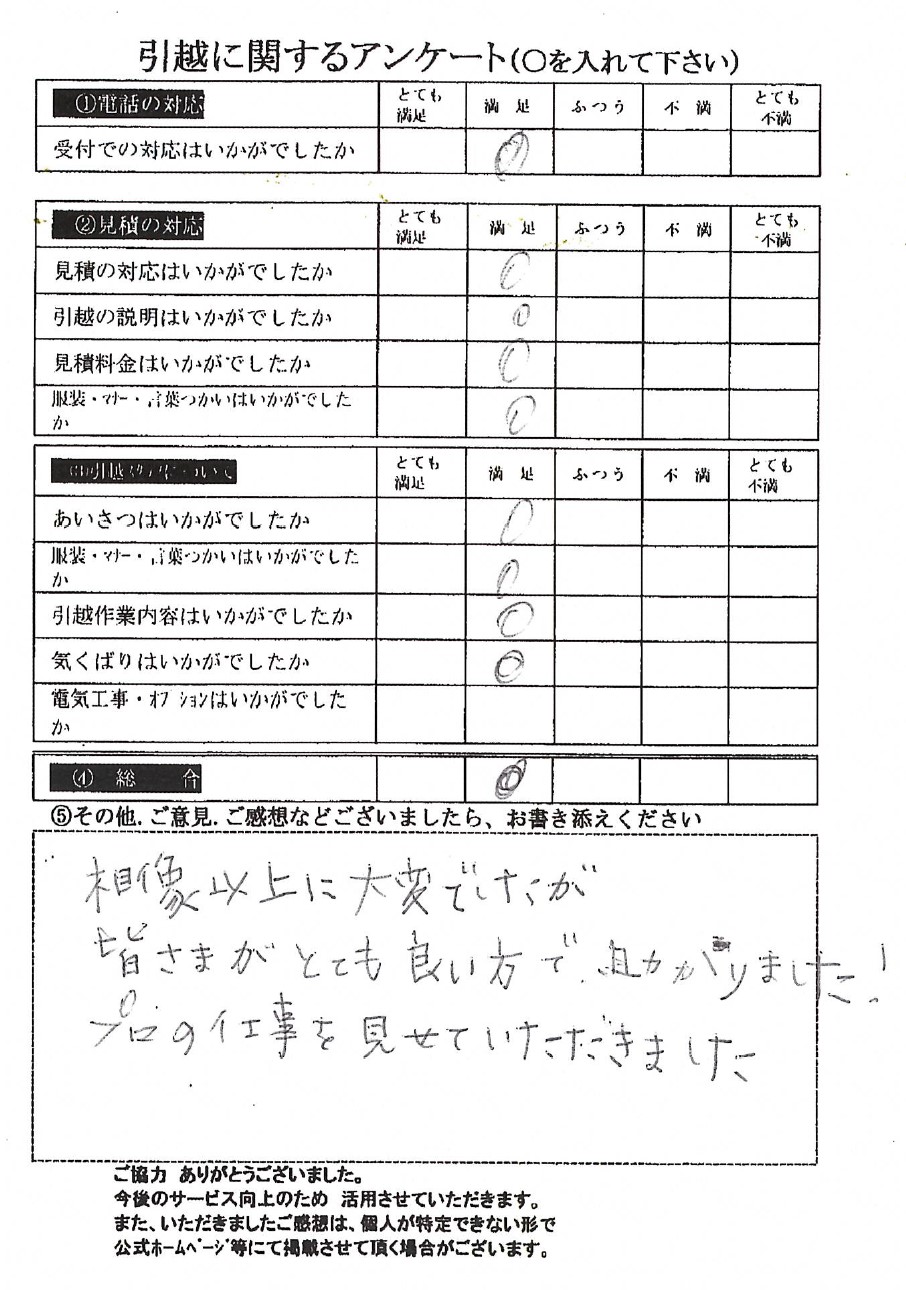 引越に関するアンケート(〇を入れて下さい)
①電話の対応 とても満足 満足 ふつう 不満 とても不満
受付での対応はいかがでしたか
②見積の対応 とても満足 満足 ふつう 不満 とても不満
見積の対応はいかがでしたか
引越の説明はいかがでしたか
見積料金はいかがでしたか
服装・マナー・言葉づかいはいかがでした
か
引越 について とても満足 満足 ふつう 不満 とても不満
あいさつはいかがでしたか
服装・マナー・言葉づかいはいかがでした
か
引越作業内容はいかがでしたか
気くばりはいかがでしたか
電気工事・オプションはいかがでした
か
④ 総 合
⑤その他.ご意見.ご感想などございましたら、お書き添えください
相像以上に大変でしたが
皆さまがとても良い方で、助かりました!
プロの仕事を見せていただきました
ご協力 ありがとうございました。
今後のサービス向上のため 活用させていただきます。
また、いただきましたご感想は、個人が特定できない形で
公式ホームページ等にて掲載させて頂く場合がございます。